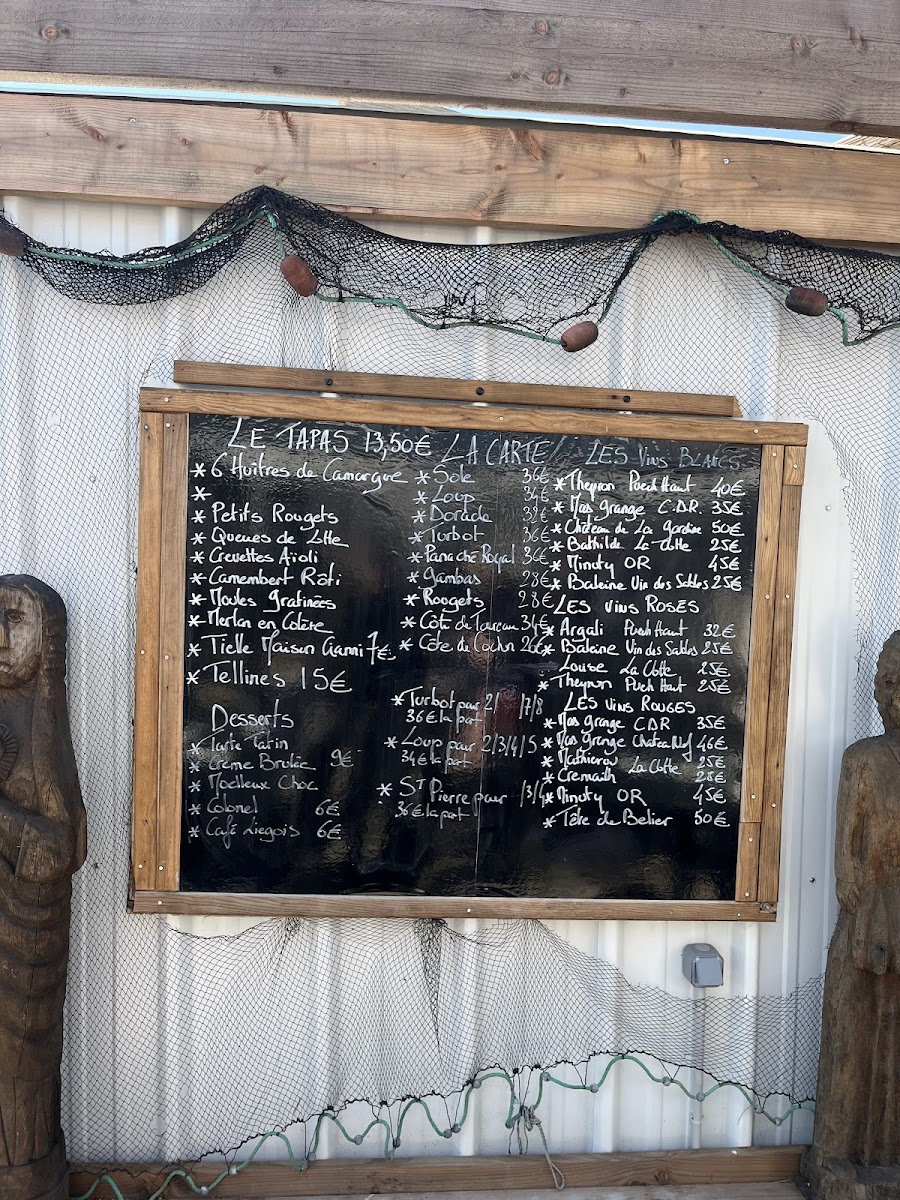 LE TAPAS 13,50€
* 6 Huitres de Camargue
*
* Petits Rougets
* Queues de Lotte
* Crevettes Aïoli
* Camembert Rôti
* Moules Gratinées
* Merlan en Colère
* Tielle Maison Garni 7€
* Tellines 15€
Desserts
* Tarte Tatin
* Crème Brulée 9€
* Moelleux Choc
* Colonel 6€
* Café Liegois 6€
LA CARTE
* Sole 36€
* Loup 34€
* Dorade 32€
* Turbot 36€
* Panaché Royal 36€
* Gambas 28€
* Rougets 28€
* Côte de Taureau 34€
* Côte de Cochon 26€
* Turbot pour 2/ /7/8
36€ la part
* Loup pour 2/3/4/5
34€ la part
* ST Pierre pour /3/4
36€ la part
LES Vins BLANCS
* Theyron Puech Haut 40€
* Mas Grange C.D.R. 35€
* Château de La Gardine 50€
* Bathilde La Cotte 25€
* Minuty OR 45€
* Baleine Vin des Sables 25€
LES VINS ROSES
* Argali Puech Haut 32€
* Baleine Vin des Sables 25€
Louise La Cotte 25€
* Theyron Puech Haut 25€
LES VINS ROUGES
* Mas Grange CDR 35€
* Mas Grange Chateau Neuf 46€
* Mathierou La Cotte 25€
* Cremailh 28€
* Minuty OR 45€
* Tête de Belier 50€